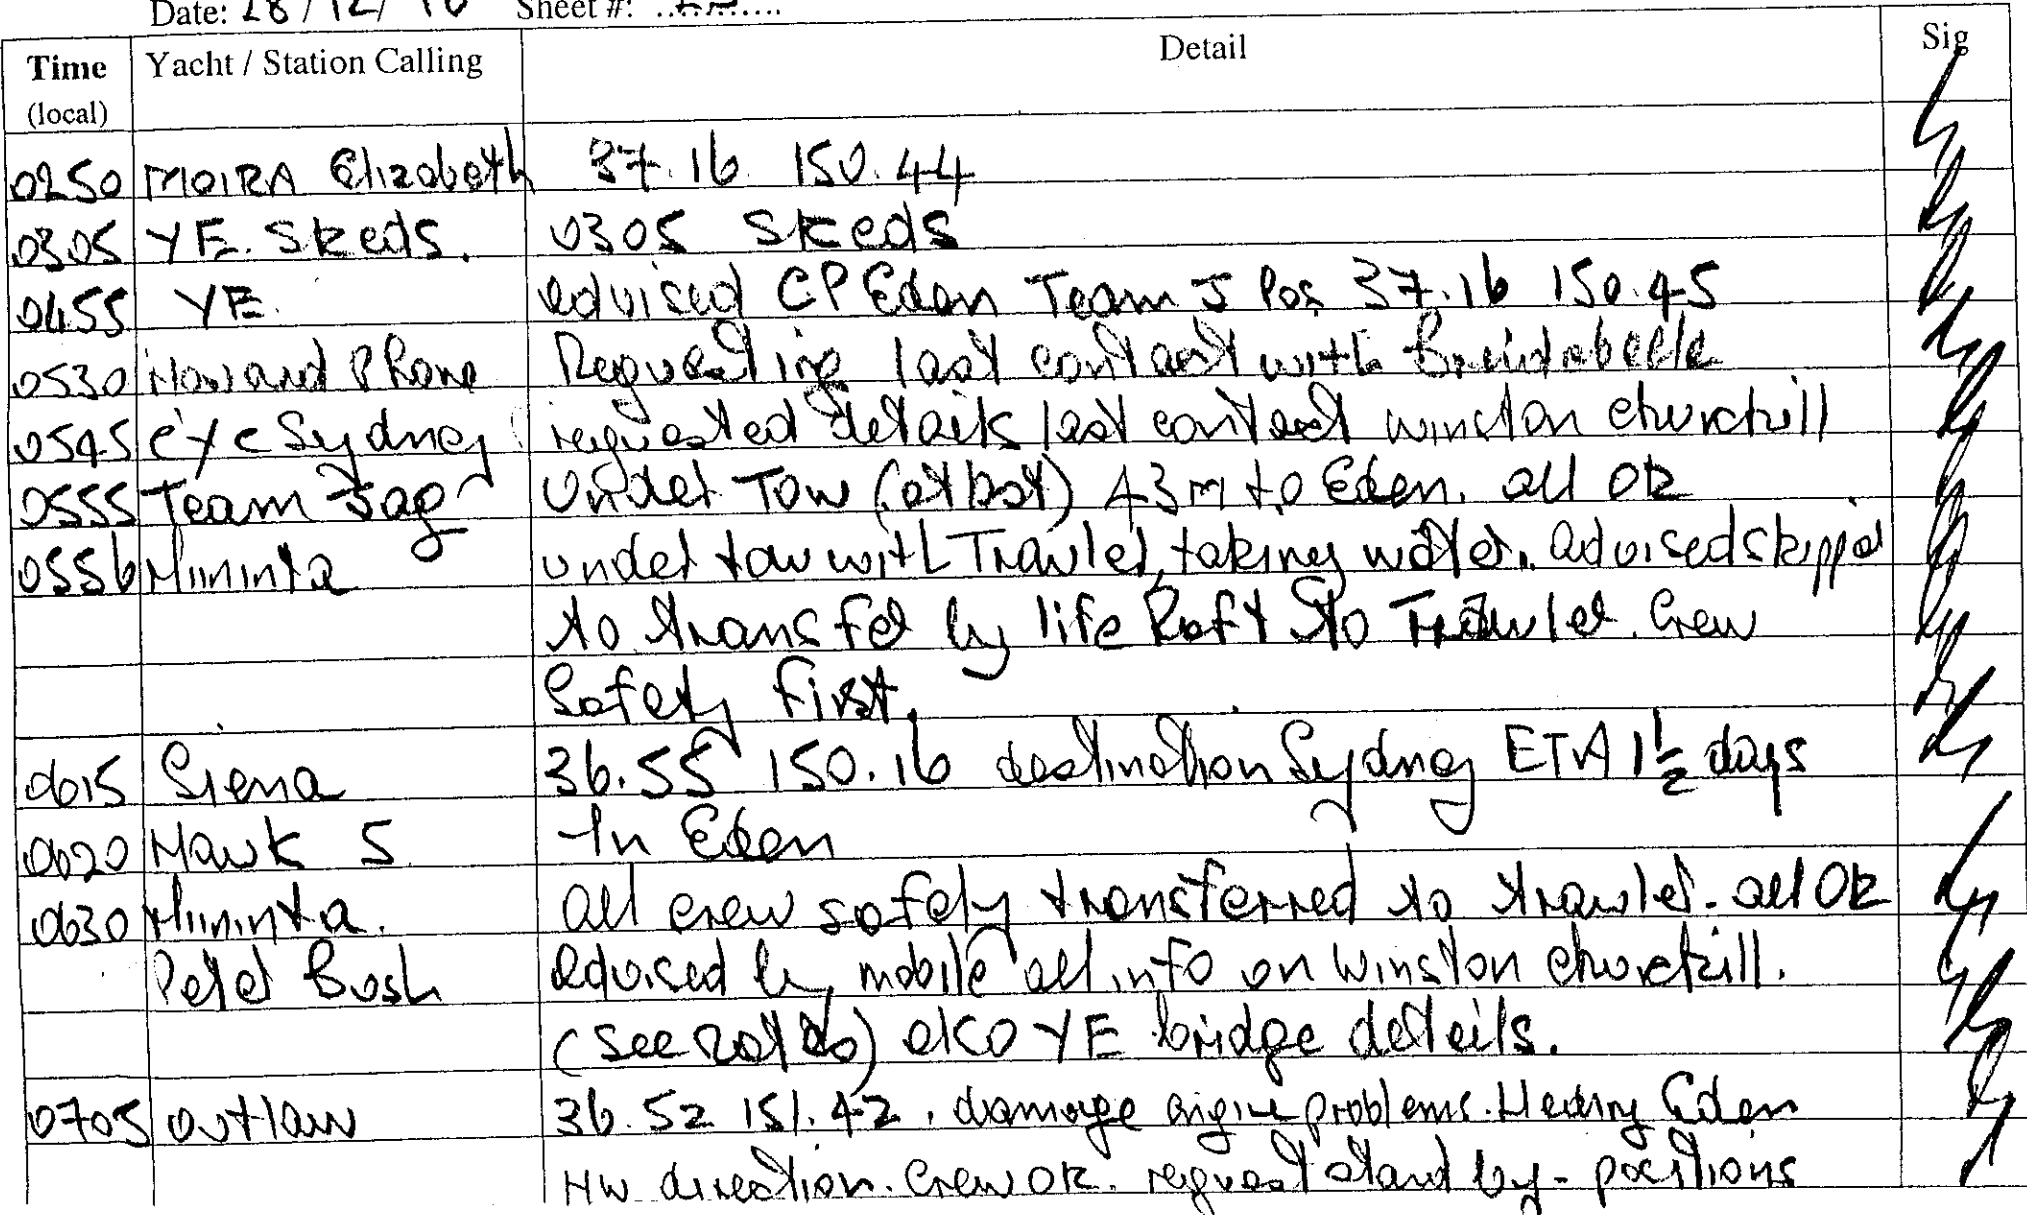 Date: 28/12/98 Sheet #:
Time (local) Yacht / Station Calling Detail Sig
0250 MOIRA Elizabeth 37.16 150.44
0305 YE. Skeds. 0305 Skeds
0455 YE. advised CP Eden Team J Pos 37.16 150.45
0530 Howard Phone Requesting last contact with Brindabella
0545 CYC Sydney requested details last contact winston churchill
0555 Team Jag Under Tow (at bat) 43m to Eden. all OK
0556 Miininta under tow with Trawler, taking water. advised skipper
to transfer by life Raft to Trawler. Crew
Safety first.
0615 Siena 36.55 150.16 destination Sydney ETA 1½ days
0620 Hawk 5 In Eden
0630 Miininta. all crew safely transferred to trawler. all OK
Peter Bush advised by mobile all info on Winston churchill.
(see) also YE bridge details.
0705 outlaw 36.52 151.42. damage engine problems. Heading Eden
NW direction. Crew OK. request stand by - positions